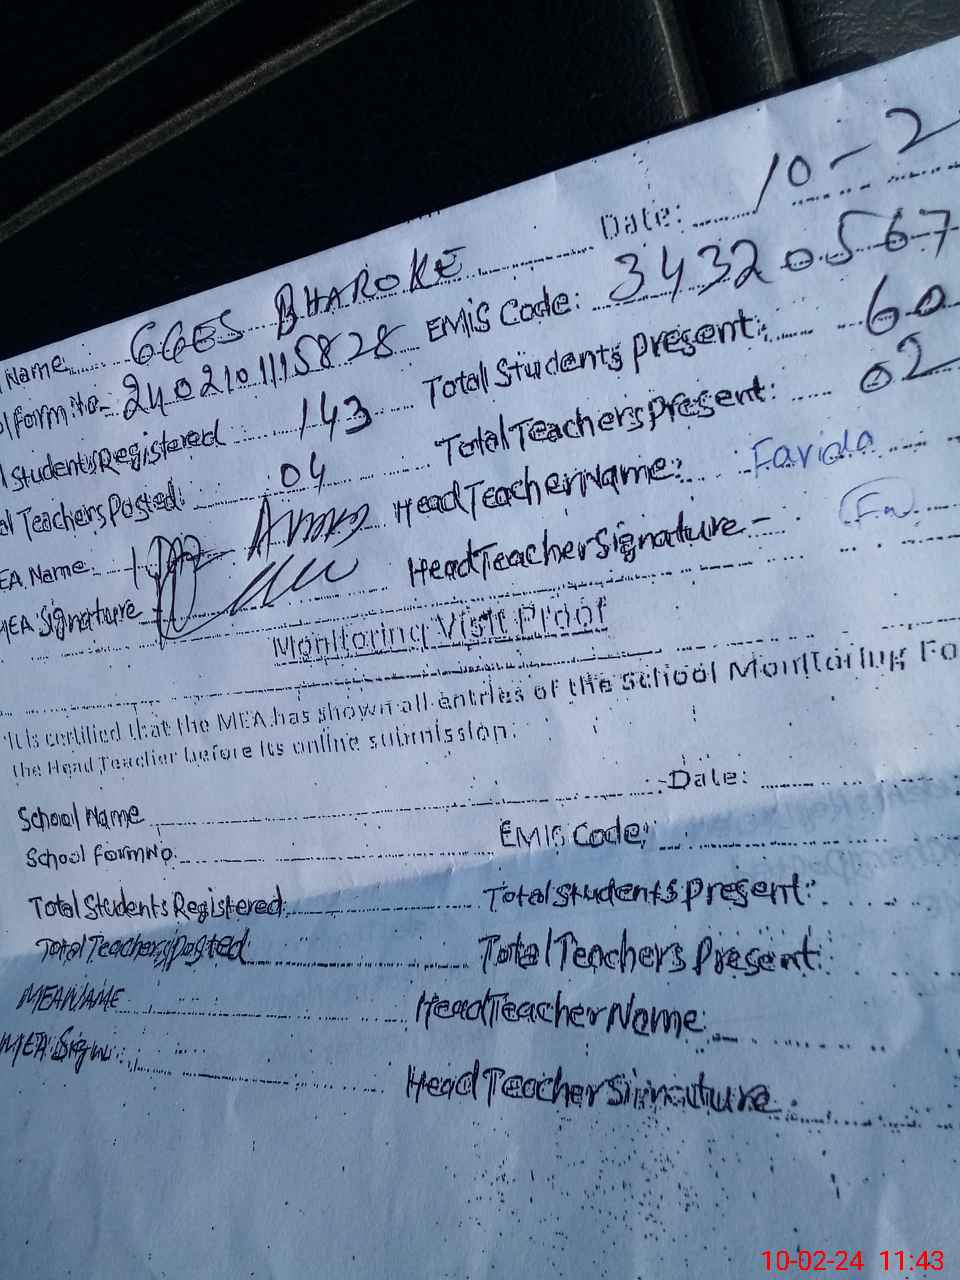 Date: 10-2
Name: GGES BHAROKE EMIS Code: 34320567
Form No- 2402101115828 Total Students Present: 60
Students Registered: 143 Total Teachers Present: 02
Teachers Posted: 04 Head Teacher Name: Farida
EA Name: Head Teacher Signature -
MEA Signature
Monitoring Visit Proof
It is certified that the MEA has shown all entries of the School Monitoring Fo
the Head Teacher before its online submission.
School Name Date:
School Form No. EMIS Code:
Total Students Registered: Total Students Present:
Total Teachers Posted Total Teachers Present:
MEA NAME Head Teacher Name:
MEA Sign: Head Teacher Signature.
10-02-24 11:43